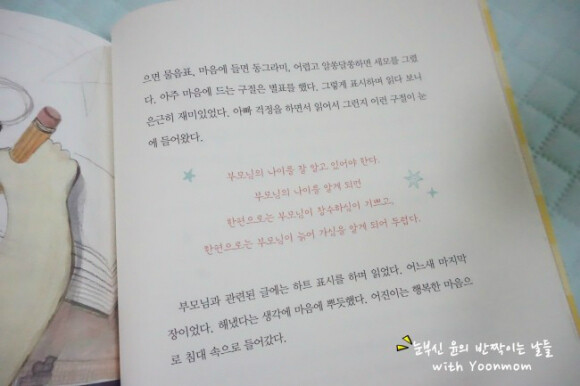 으면 물음표, 마음에 들면 동그라미, 어렵고 알쏭달쏭하면 세모를 그렸
다. 아주 마음에 드는 구절은 별표를 했다. 그렇게 표시하며 읽다 보니
은근히 재미있었다. 아빠 걱정을 하면서 읽어서 그런지 이런 구절이 눈
에 들어왔다.
부모님의 나이를 잘 알고 있어야 한다.
부모님의 나이를 알게 되면
한편으로는 부모님이 장수하심이 기쁘고,
한편으로는 부모님이 늙어 가심을 알게 되어 두렵다.
부모님과 관련된 글에는 하트 표시를 하며 읽었다. 어느새 마지막
장이었다. 해냈다는 생각에 마음에 뿌듯했다. 어진이는 행복한 마음으
로 침대 속으로 들어갔다.
눈부신 윤의 반짝이는 날들
with Yoonmom